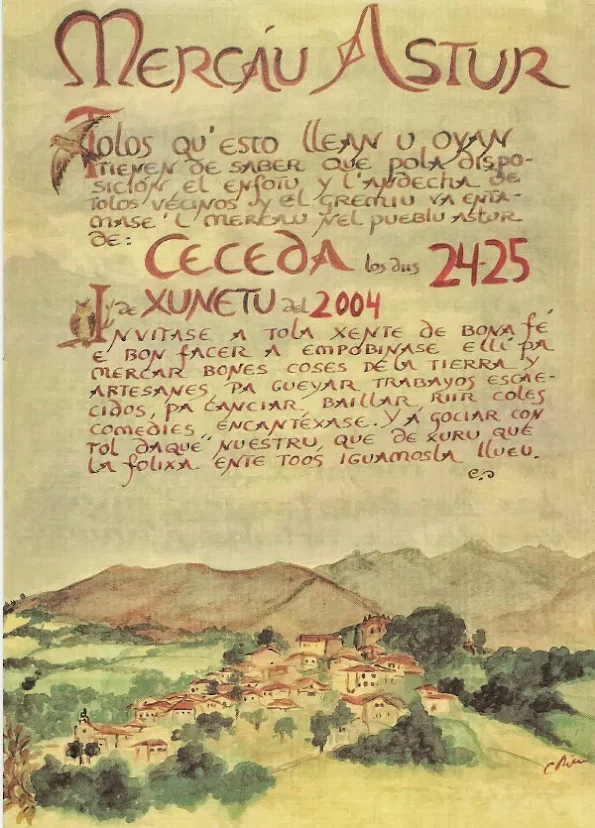 MERCÁU ASTUR
TOLOS QU'ESTO LLEAN U OYAN
TIENEN DE SABER QUE POLA DISPO-
SICIÓN EL ENFOTU Y L'ANDECHA DE
TOLOS VECINOS Y EL GREMIU VA ENTA-
MASE'L MERCÁU NEL PUEBLU ASTUR
DE:
CECEDA los díis 24-25
y de XUNETU del 2004
INVITASE A TOLA XENTE DE BONA FÉ
E BON FACER A EMPOBINASE ELLÍ PA
MERCAR BONES COSES DE LA TIERRA Y
ARTESANES, PA GUEYAR TRABAYOS ESCAE-
CIDOS, PA CANCIAR, BAILLAR, RIIR COLES
COMEDIES ENCANTÉXASE. Y A GOCIAR CON
TOL DAQUÉ NUESTRU, QUE DE XURU QUE
LA FOLIXA ENTE TOOS IGUAMOSLA LLUEU.